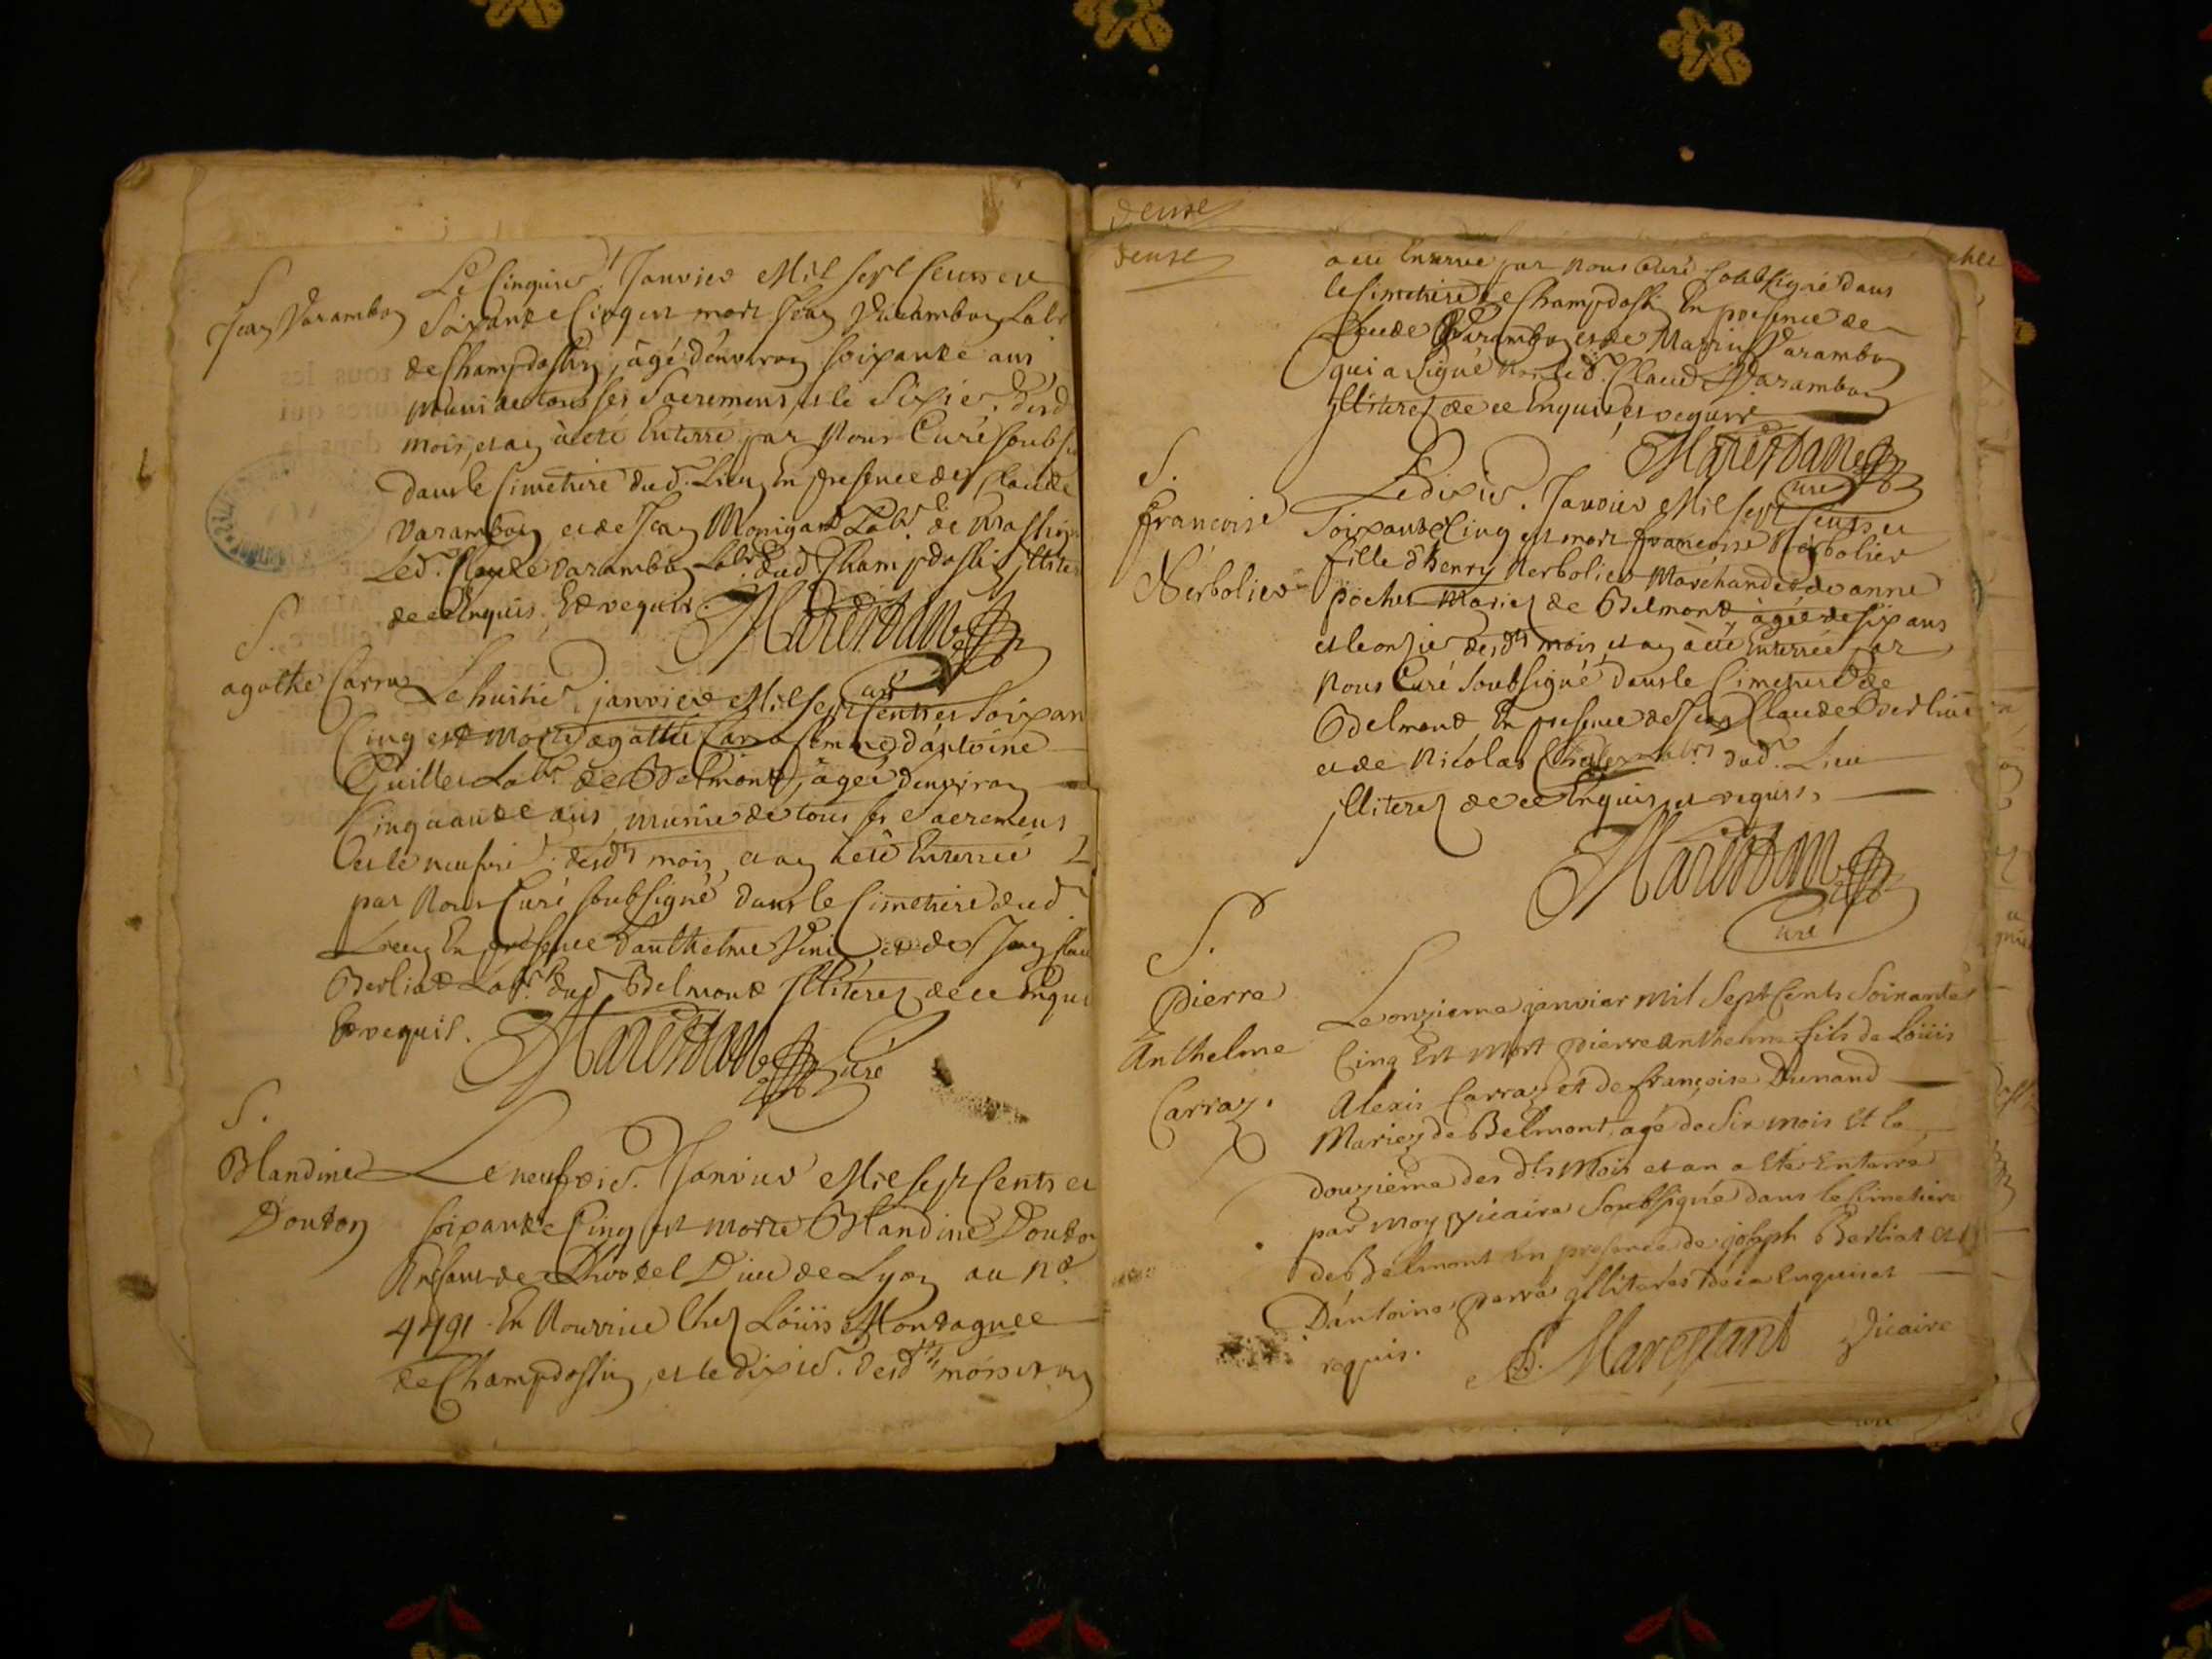 S
Jean Varambon
Le Cinquie. Janvier Mil sept Cents et
Soixante Cinq est mort Jean Varambon Labr
de Champdossin, âgé d'environ soixante ans
muni de tous ses Sacremens, et le Sixie. desd
mois, et an à eté Enterré par Nous Curé soubs
dans le Cimetiere dud. Lieu En presence de Claude
Varambon et de Jean Monigard Labr. de
Led. Claude Varambon Labr. dud. Champdossin illite
de ce Enquis. Et requis.
Marestan
Curé
S.
agathe Carra
Le huitie janvier Mil sept Cents et Soixan
Cinq est Morte agathe Carra femme d'antoine
Guillet Labr. de Belmont, âgée denviron
Cinquante ans, munie de tous ses Sacremens
et le neufvie. desdts mois, et an à eté Enterrée
par Nous Curé soubsigné dans le Cimetiere dud
Lieu En presence d'anthelme et de Jean Clau
Berliat Labrs. dud. Belmont Illiterez de ce Enqui
Et requis.
Marestan Curé
S.
Blandine
Douton
Le neufvie. Janvier Mil sept Cents et
soixante Cinq est morte Blandine Douton
Enfant de Lhotel Dieu de Lyon au No.
4491. En Nourrice Chez Loüis Montagnee
de Champdossin, et le dixie. desdts mois et an
deuxe
deuxe
à eté Enterrée par Nous Curé soubsigné dans
le Cimetiere de Champdossin En presence de
Claude Varambon et de Varambon
qui a signé Non led. Claude Varambon
illiterez de ce Enquis, et requis
Marestan
Curé
S.
francoise
Nerbolier
Le dixie. Janvier Mil sept Cents et
Soixante Cinq est mort francoise Nerbolier
fille d'henry Nerbolier Marchand et de anne
pochet Mariez de Belmont, âgée de six ans
et le onzie desdts mois, et an à eté Enterrée par
Nous Curé Soubsigné dans le Cimetiere de
Belmont En presence de Jean Claude Berliat
et de Nicolas Labrs dud. Lieu
illiterez de ce Enquis, et requis,
Marestan
Curé
S.
Pierre
Anthelme
Carraz.
Le onzieme janvier Mil Sept Cents Soixante
Cinq Est Mort pierre anthelme fils de Loüis
Alexis Carraz et de françoise Dunand
Mariez de Belmont, agé de Six mois Et le
douzieme des dts Mois et an a Eté Enterré
par moy Vicaire Soubsigné dans le Cimetiere
de Belmont En presence de joseph Berliat et
D'antoine illiterés de ce Enquis et
requis.
Marestant Vicaire